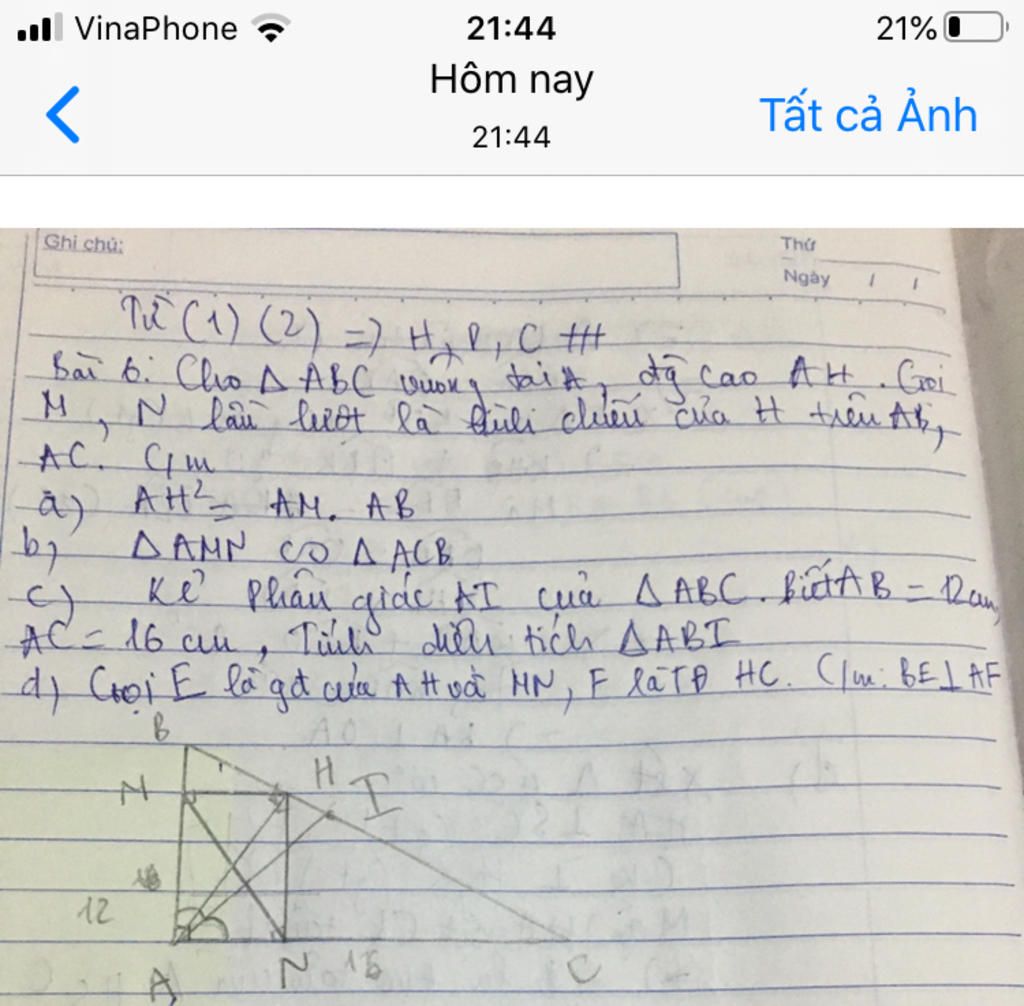 VinaPhone 21:44 21%
Hôm nay
21:44
Tất cả Ảnh
Ghi chú:
Thứ
Ngày / /
Từ (1) (2) => H, P, C #
Bài 6: Cho Δ ABC vuông tại A, đg cao AH. Gọi
M, N lần lượt là hình chiếu của H trên AB,
AC. C/m
a) AH² = AM. AB
b, Δ AMN ∽ Δ ACB
c) Kẻ phân giác AI của Δ ABC. Biết AB = 12cm,
AC = 16 cm, Tính diện tích Δ ABI
d) Gọi E là gđ của AH và MN, F là TĐ HC. C/m: BE ⊥ AF
B
M H I
12
A N 16 C